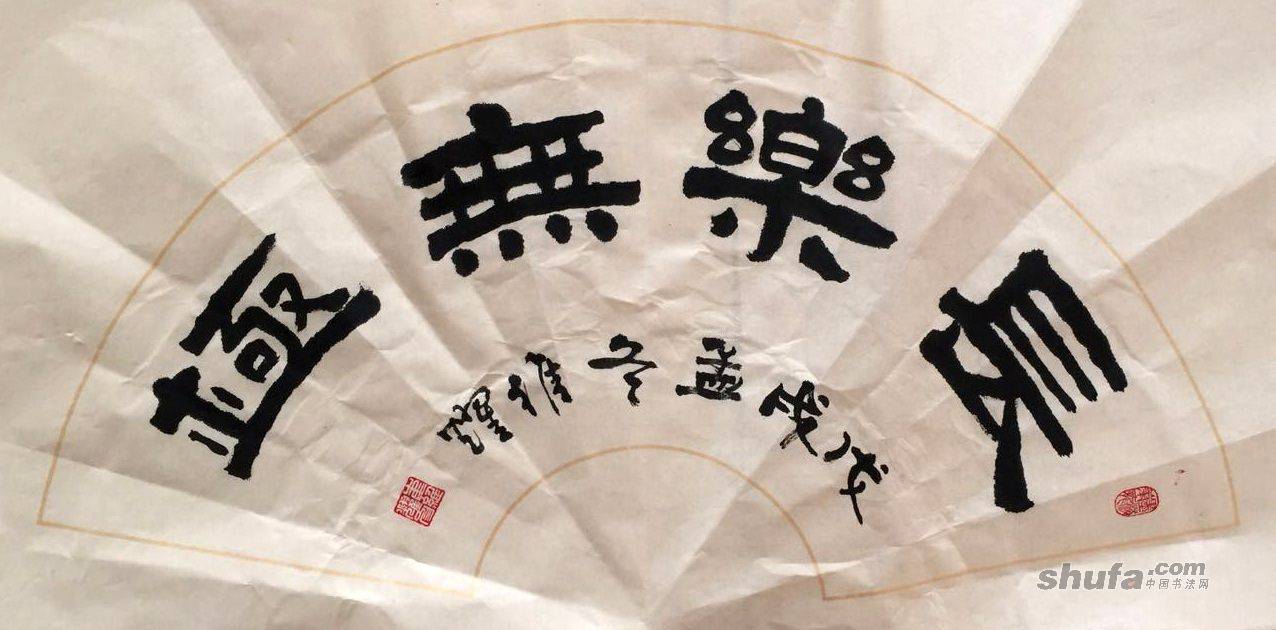 長樂無極
戊戌孟冬維耀
shufa.com
中国书法网